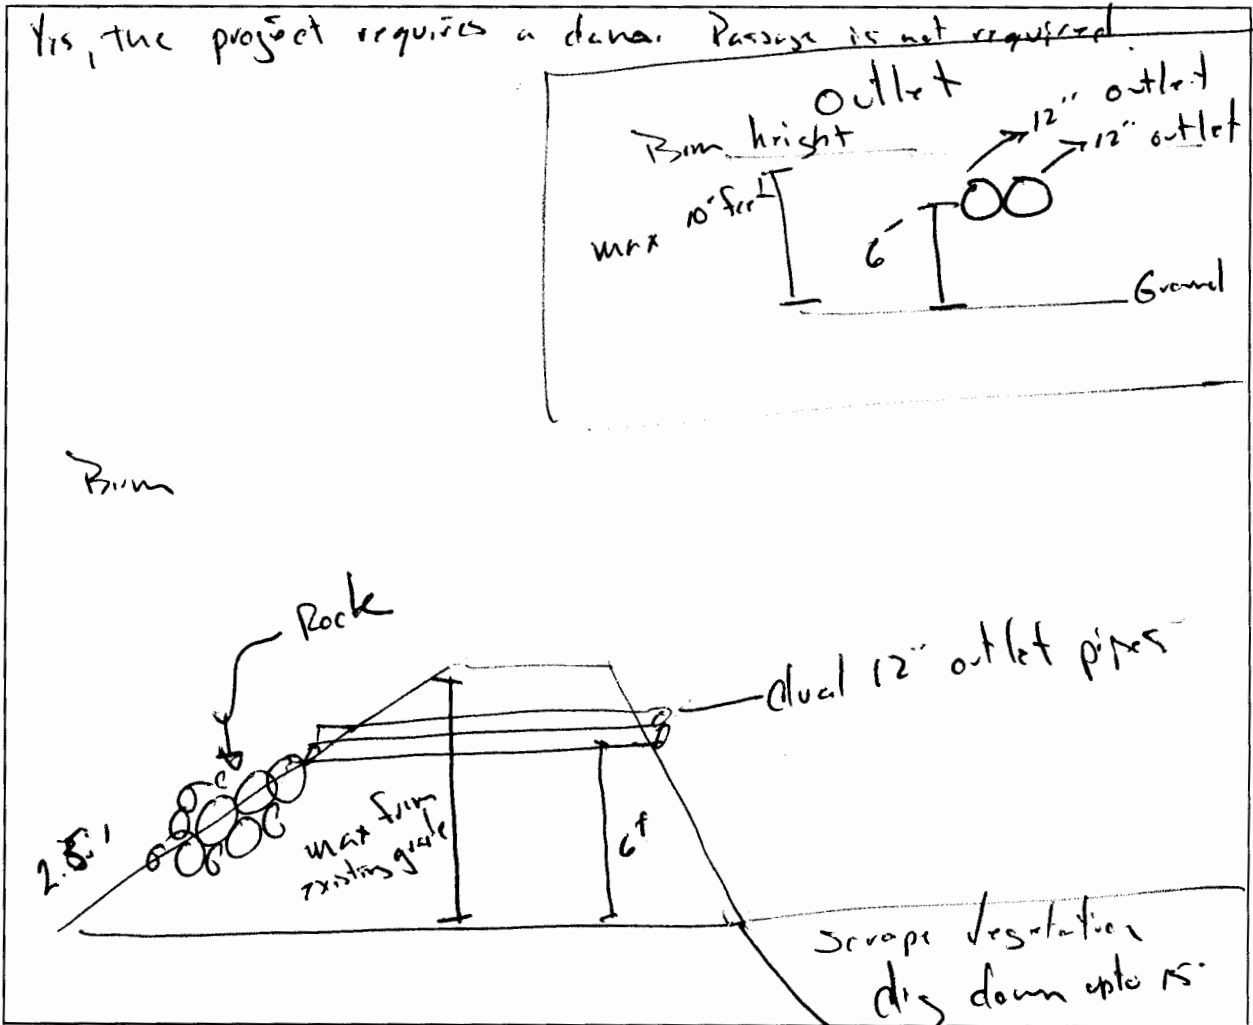 Yes, the project requires a dam. Passage is not required
outlet
Berm height
12" outlet
12" outlet
max 10' feet
6'
Ground
Berm
Rock
dual 12" outlet pipes
2.5:1
max from
existing grade
6'
scrape vegetation
dig down upto 15'